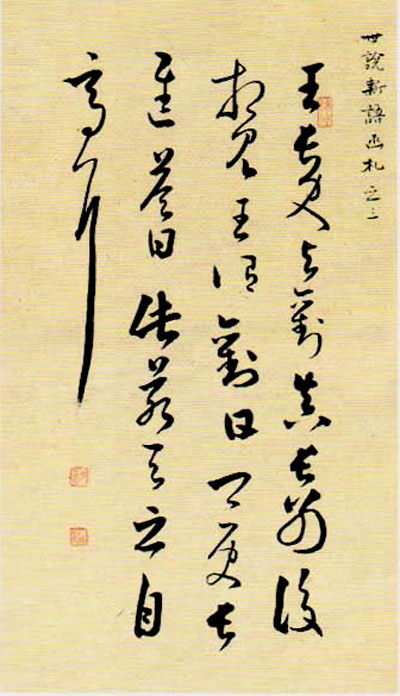 世說新語札之
王長史與劉真長別後
相見王謂劉曰卿更長
進答曰此若天之自
高耳